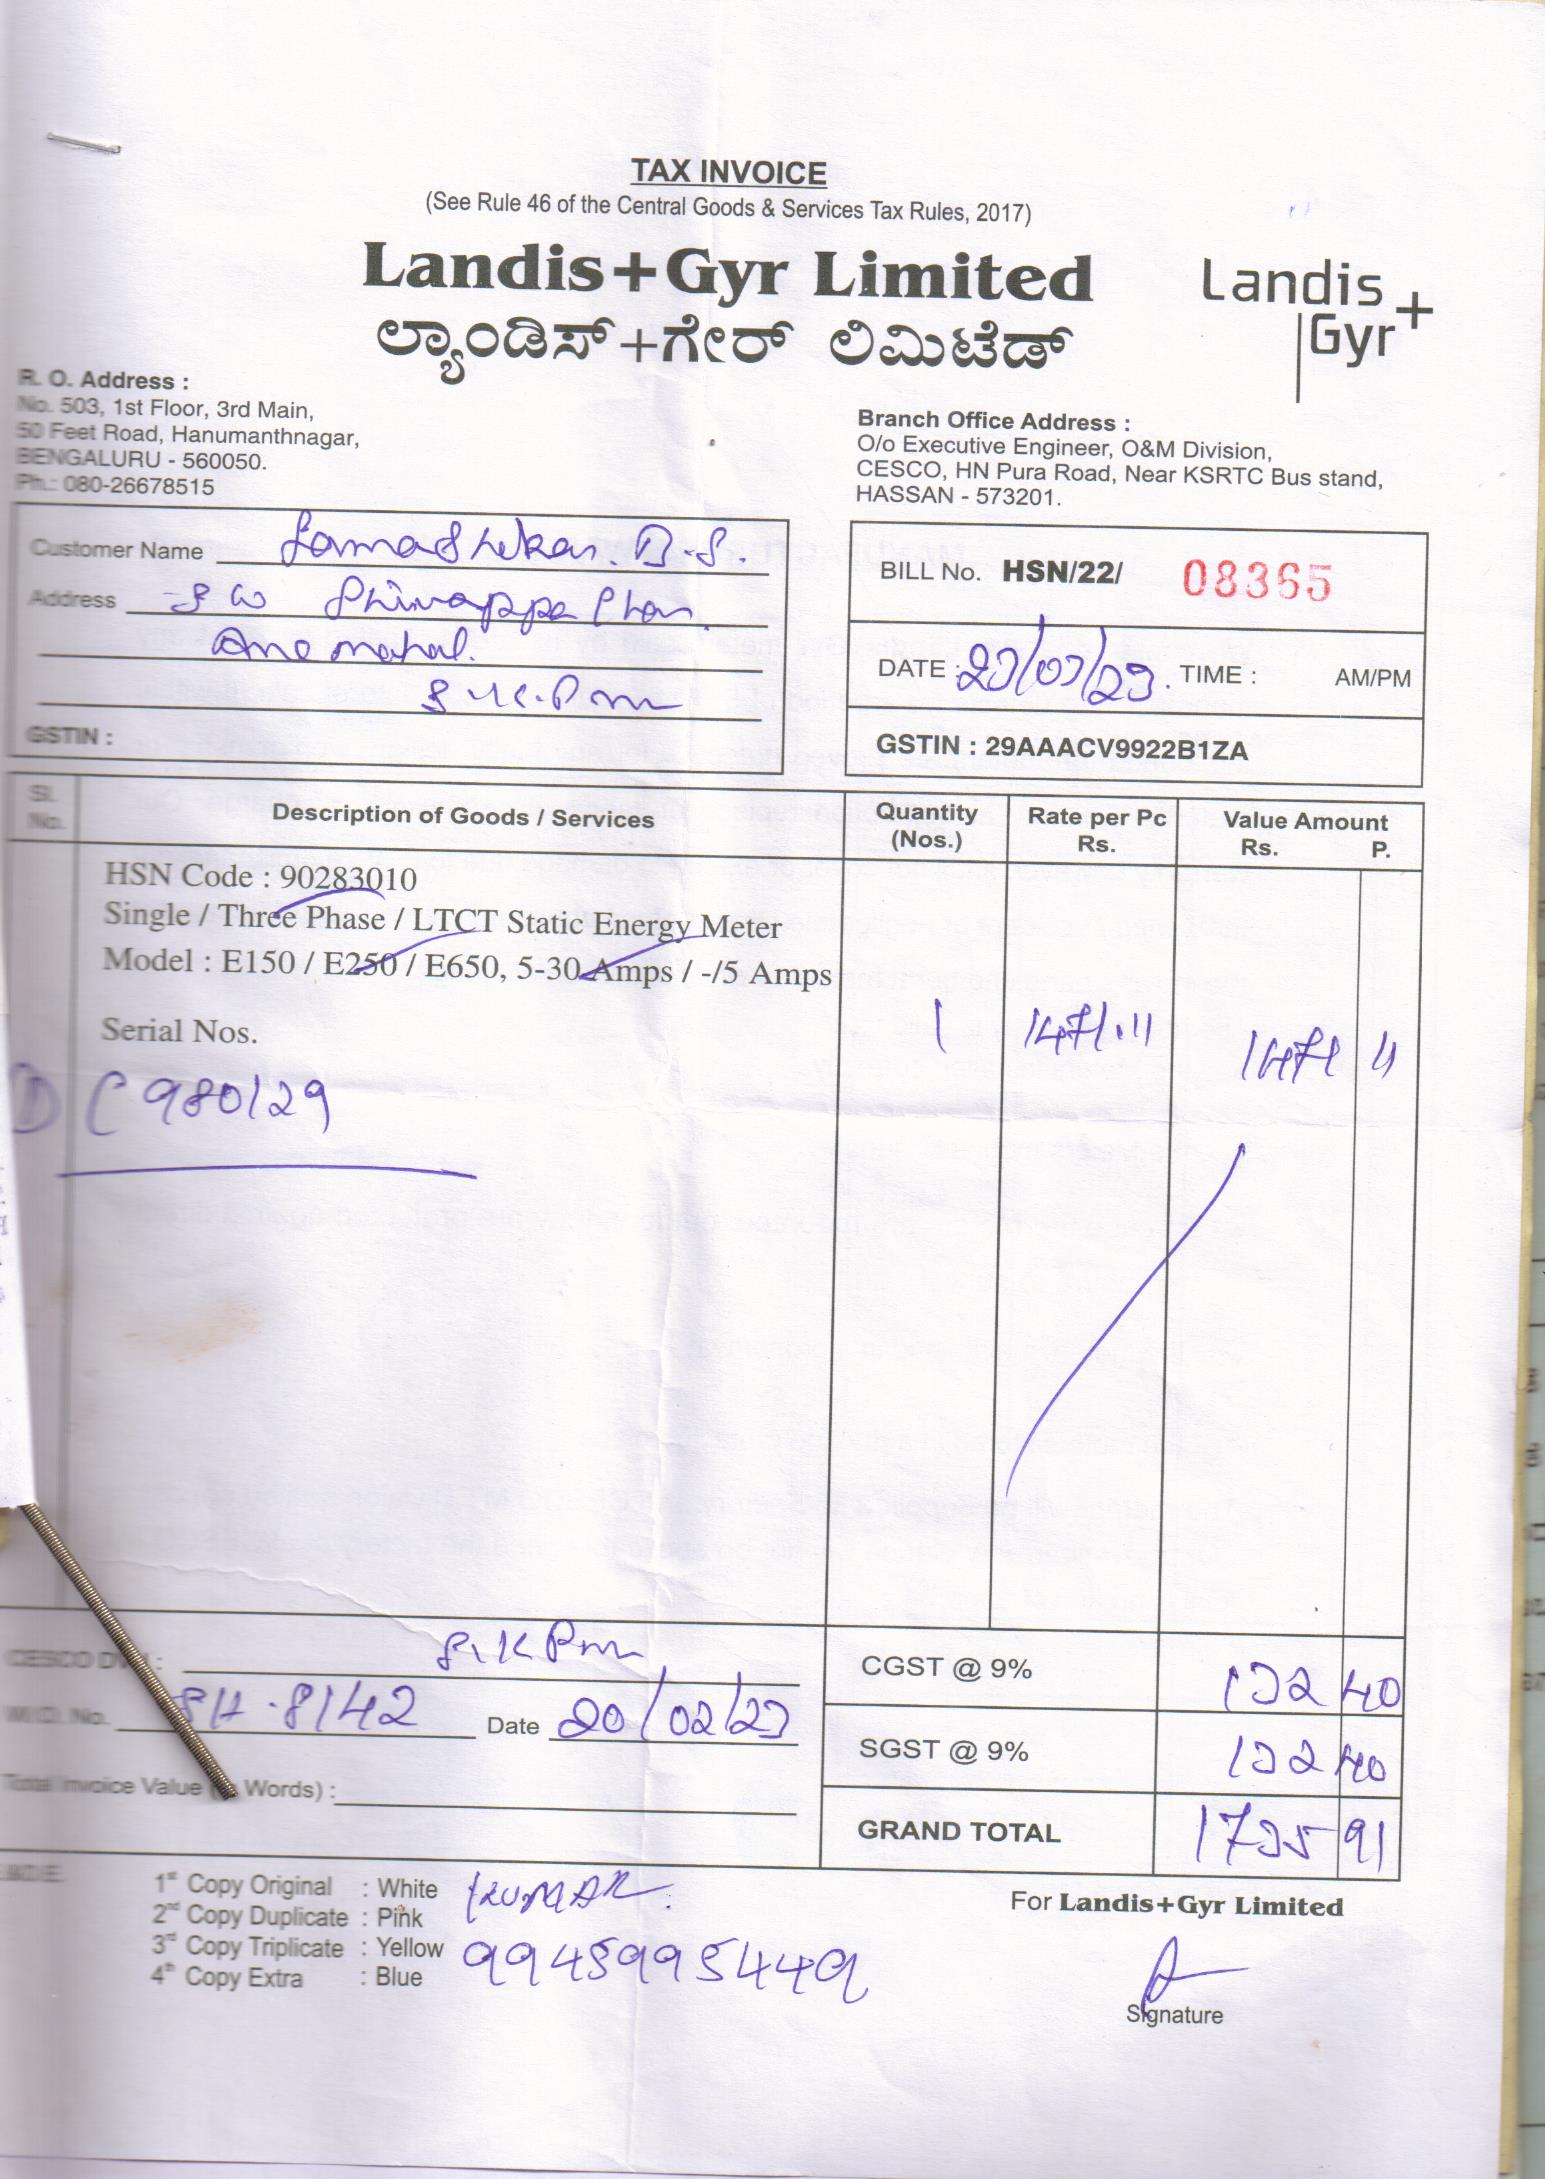 TAX INVOICE
(See Rule 46 of the Central Goods & Services Tax Rules, 2017)
Landis+Gyr Limited
ಲ್ಯಾಂಡಿಸ್+ಗೇರ್ ಲಿಮಿಟೆಡ್
Landis+
Gyr
R. O. Address :
No. 503, 1st Floor, 3rd Main,
50 Feet Road, Hanumanthnagar,
BENGALURU - 560050.
Ph.: 080-26678515
Branch Office Address :
O/o Executive Engineer, O&M Division,
CESCO, HN Pura Road, Near KSRTC Bus stand,
HASSAN - 573201.
Customer Name
Address
GSTIN :
BILL No. HSN/22/ 08365
DATE : TIME : AM/PM
GSTIN : 29AAACV9922B1ZA
Sl. No. Description of Goods / Services Quantity (Nos.) Rate per Pc Rs. Value Amount Rs. P.
HSN Code : 90283010
Single / Three Phase / LTCT Static Energy Meter
Model : E150 / E250 / E650, 5-30 Amps / -/5 Amps
1 1471.11 1471 11
Serial Nos.
980129
CESCO
W.O. No. 8142 Date 20/02/23
Total Invoice Value Words) :
CGST @ 9% 132 40
SGST @ 9% 132 40
GRAND TOTAL 1735 91
1st Copy Original : White
2nd Copy Duplicate : Pink
3rd Copy Triplicate : Yellow
4th Copy Extra : Blue
KUMAR
9945995449
For Landis+Gyr Limited
Signature